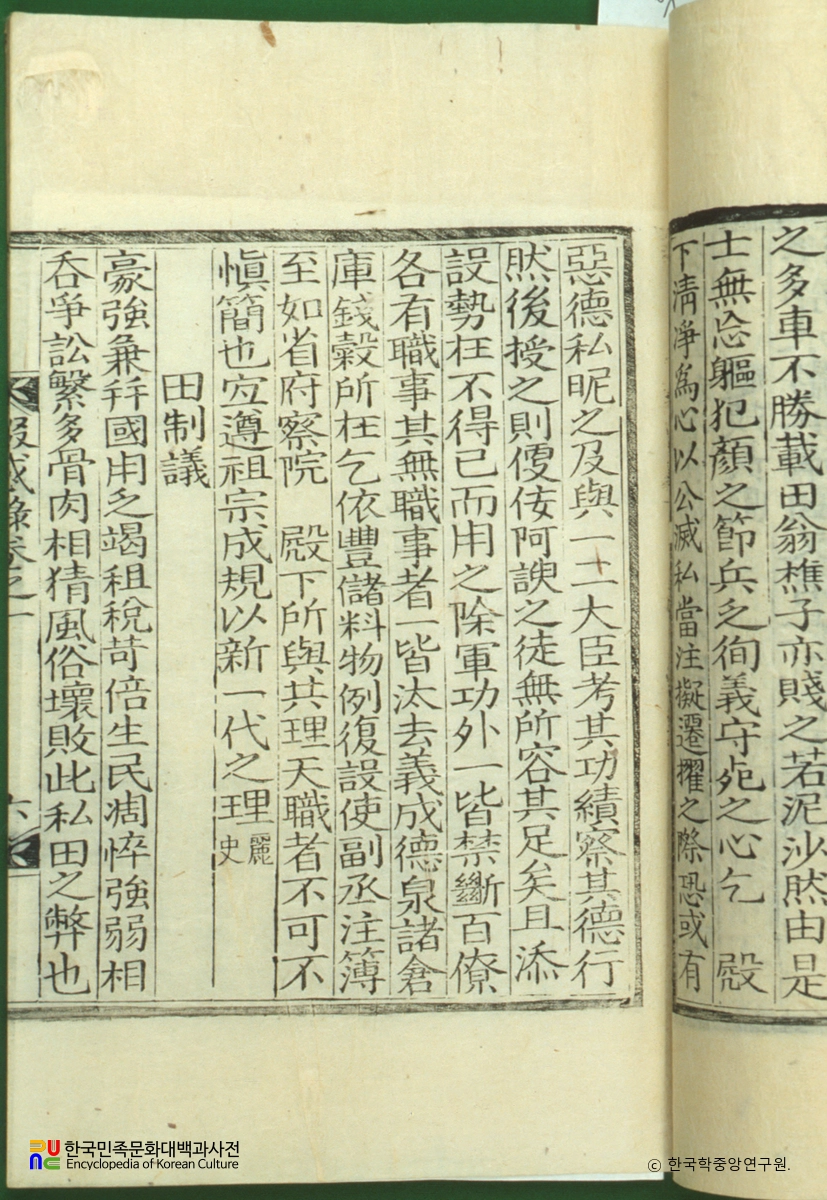 之多車不勝載田翁樵子亦賤之若泥沙然由是
士無忘軀犯顏之節兵乏徇義守死之心乞 殿
下淸淨爲心以公滅私當注擬遷擢之際恐或有
惡德私昵之及與一二大臣考其功績察其德行
然後授之則便佞阿諛之徒無所容其足矣且添
設勢在不得已而用之除軍功外一皆禁斷百僚
各有職事其無職事者一皆汰去義成德泉諸倉
庫錢穀所在乞依豐儲料物例復設使副丞注簿
至如省府察院 殿下所與共理天職者不可不
愼簡也宜遵祖宗成規以新一代之理麗史
田制議
豪強兼幷國用乏竭租稅苛倍生民凋悴強弱相
呑爭訟繁多骨肉相猜風俗壞敗此私田之弊也
卷之一
六
한국민족문화대백과사전
Encyclopedia of Korean Culture
© 한국학중앙연구원.